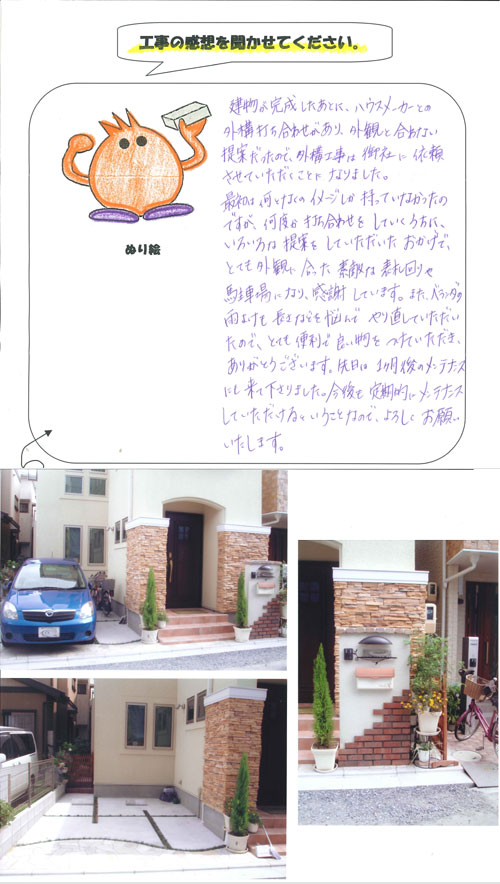 工事の感想を聞かせてください。
ぬり絵
建物が完成したあとに、ハウスメーカーとの
外構打ち合わせがあり、外観と合わない
提案だったので、外構工事は御社に依頼
させていただくことに なりました。
最初は何となくのイメージしか持っていなかったの
ですが、何度か打ち合わせをしていくうちに、
いろいろな提案をしていただいたおかげで、
とても外観に合った素敵な表札回りや
馬主車場になり、感謝しています。また、ベランダの
雨よけも長さなどを悩んで やり直していただい
たので、とても便利で良い物をつけていただき、
ありがとうございます。先日は1ヶ月後のメンテナンス
にも来て下さりました。今後も定期的にメンテナンス
していただけるということなので、よろしくお願い
いたします。